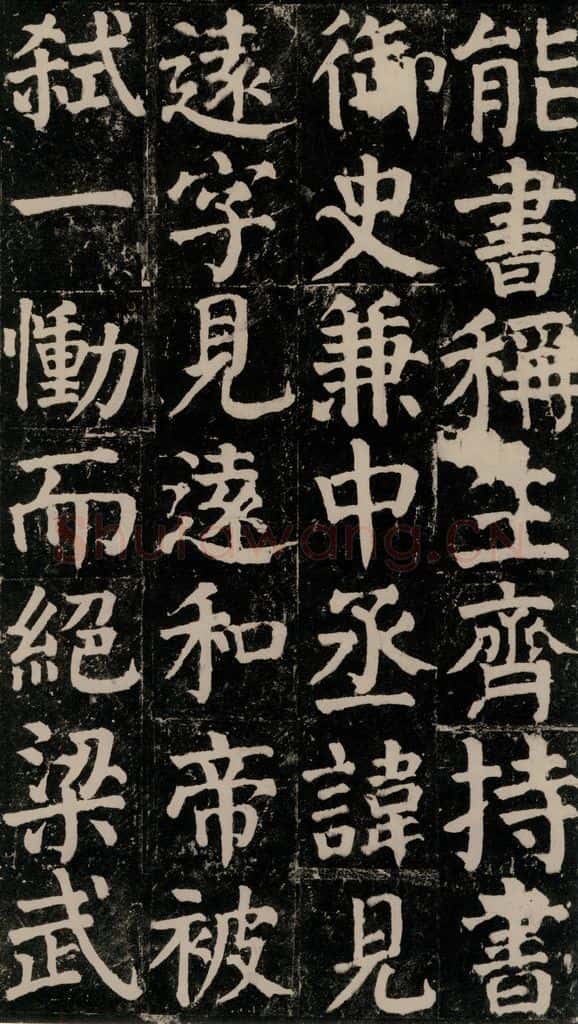 能書稱生齊持書
御史兼中丞諱見
遠字見遠和帝被
弒一慟而絕梁武
Shufawang.CN